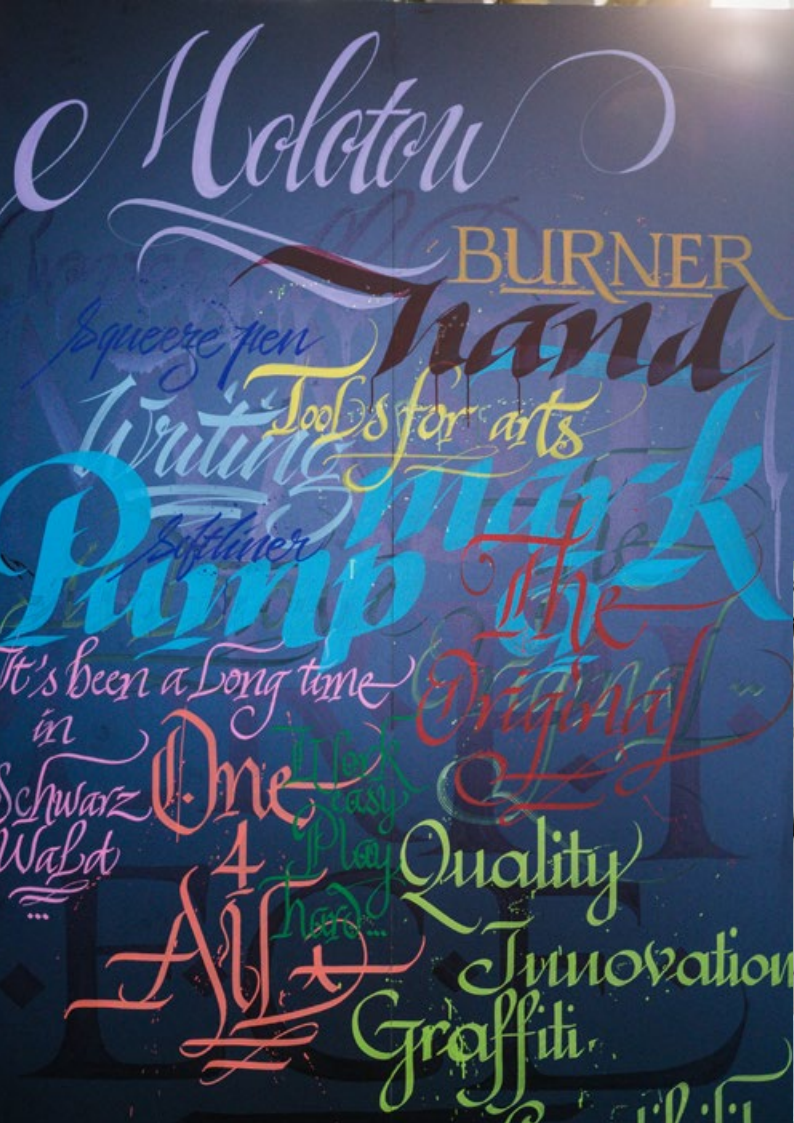 Molotow
BURNER
hand
Squeeze pen
Tools for arts
Writing
mark
Softliner
Pump
The
Original
It's been a Long time
in
Schwarz
Wald
...
One
4
All
Work
easy
Play
hard...
Quality
Innovation
Graffiti